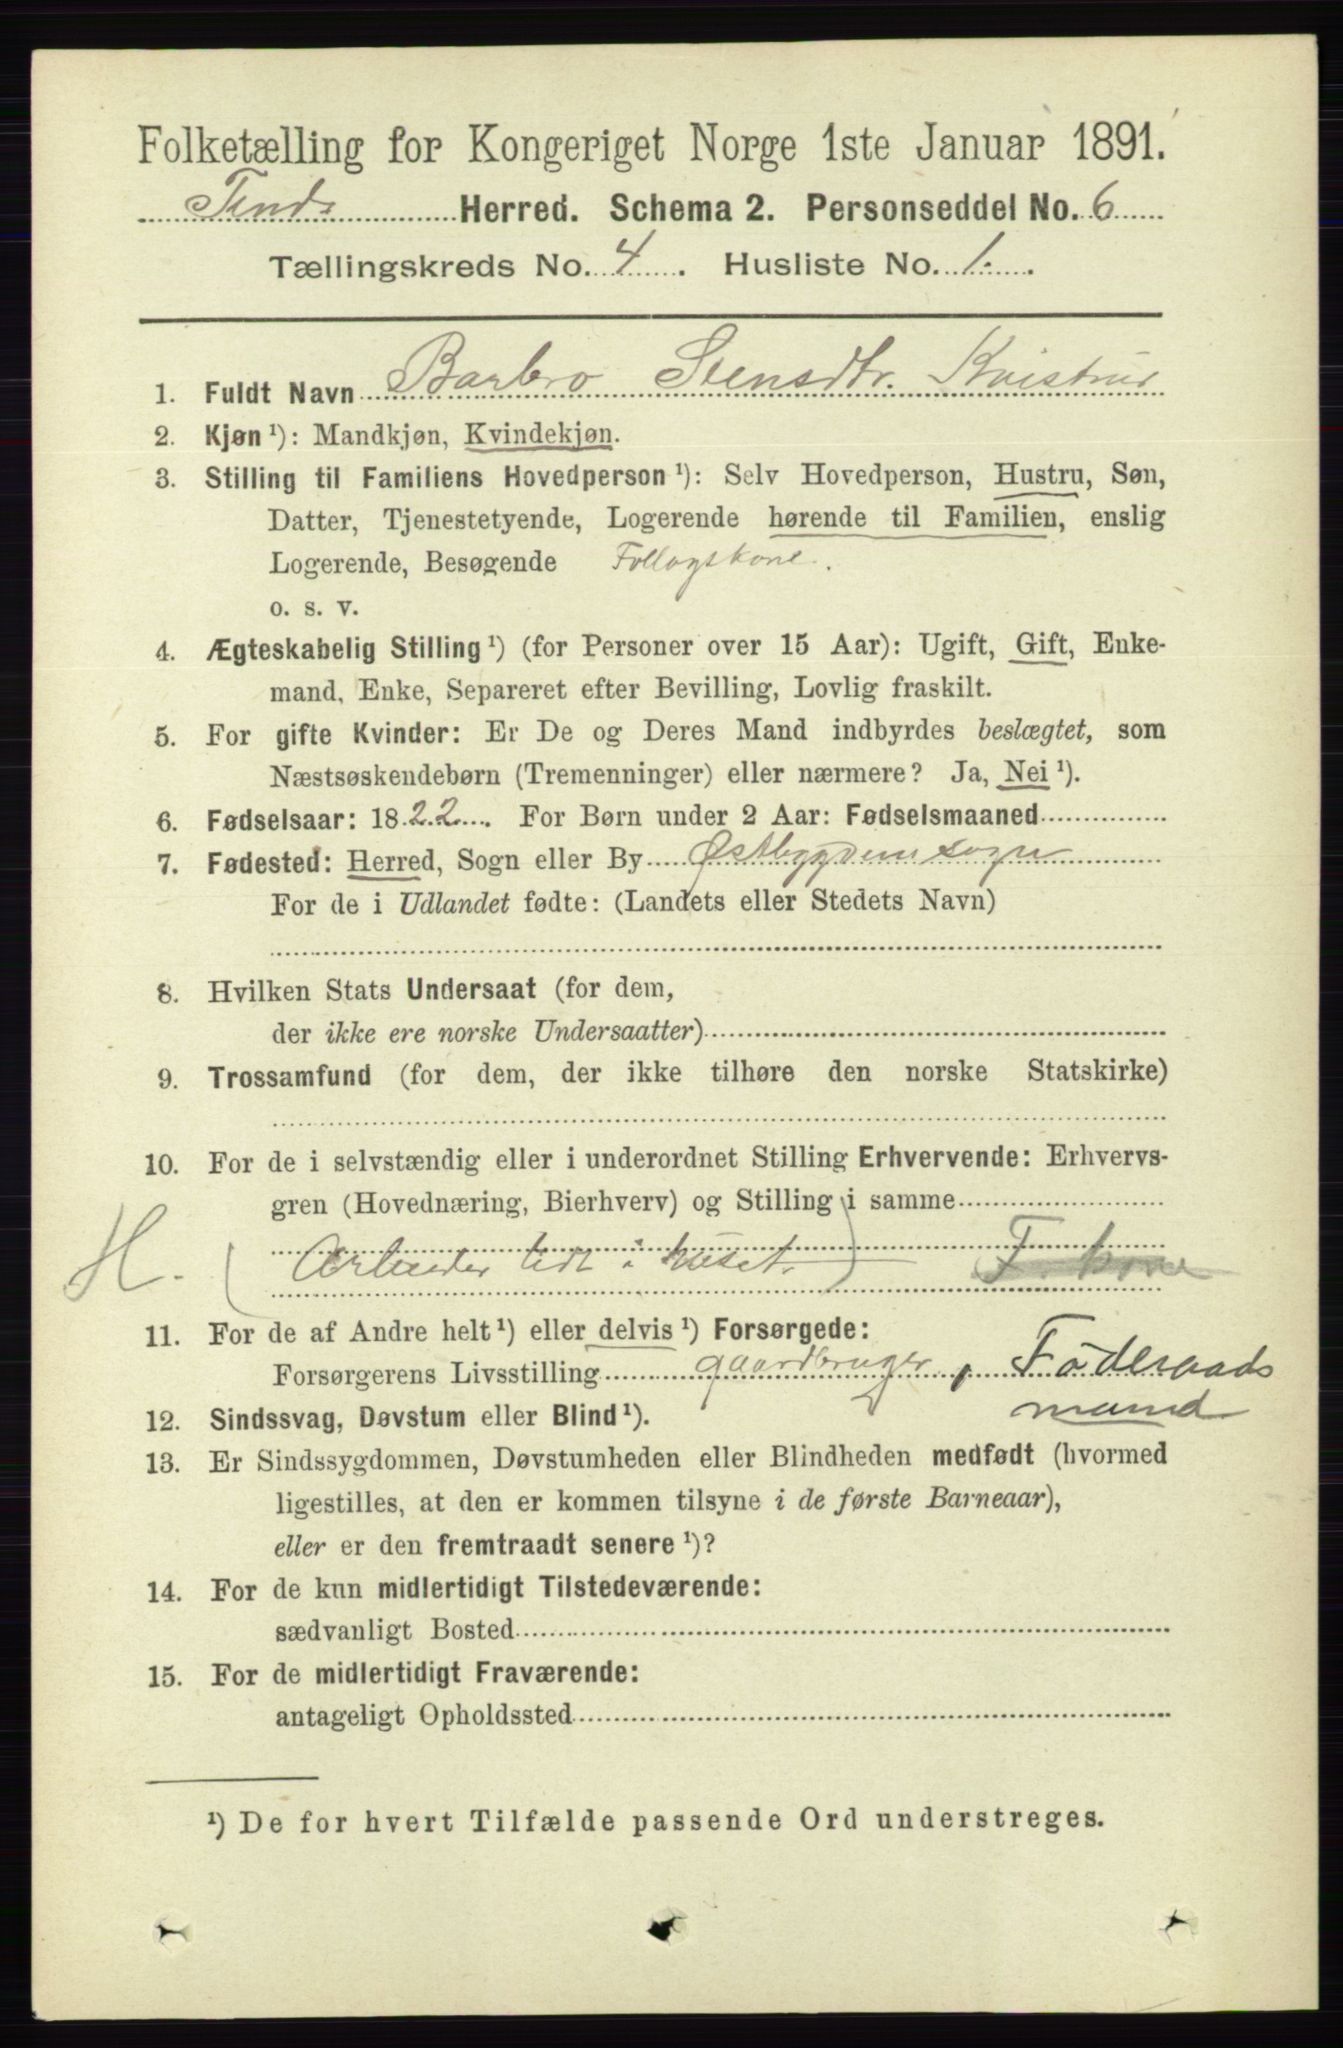 Folketælling for Kongeriget Norge 1ste Januar 1891.
Tinds Herred. Schema 2. Personseddel No. 6
Tællingskreds No. 4. Husliste No. 1.
1. Fuldt Navn Barbro Stensdtr. Kvistrud
2. Kjøn ¹): Mandkjøn, Kvindekjøn.
3. Stilling til Familiens Hovedperson ¹): Selv Hovedperson, Hustru, Søn,
Datter, Tjenestetyende, Logerende hørende til Familien, enslig
Logerende, Besøgende Follogskone.
o. s. v.
4. Ægteskabelig Stilling ¹) (for Personer over 15 Aar): Ugift, Gift, Enke-
mand, Enke, Separeret efter Bevilling, Lovlig fraskilt.
5. For gifte Kvinder: Er De og Deres Mand indbyrdes beslægtet, som
Næstsøskendebørn (Tremenninger) eller nærmere? Ja, Nei ¹).
6. Fødselsaar: 1822. For Børn under 2 Aar: Fødselsmaaned
7. Fødested: Herred, Sogn eller By Østbygdens sogn
For de i Udlandet fødte: (Landets eller Stedets Navn)
8. Hvilken Stats Undersaat (for dem,
der ikke ere norske Undersaatter)
9. Trossamfund (for dem, der ikke tilhøre den norske Statskirke)
10. For de i selvstændig eller i underordnet Stilling Erhvervende: Erhvervs-
gren (Hovednæring, Bierhverv) og Stilling i samme
H. (Arbeider lidt i huset.) F. kone
11. For de af Andre helt ¹) eller delvis ¹) Forsørgede:
Forsørgerens Livsstilling gaardbruger, Föderaads
mand
12. Sindssvag, Døvstum eller Blind ¹).
13. Er Sindssygdommen, Døvstumheden eller Blindheden medfødt (hvormed
ligestilles, at den er kommen tilsyne i de første Barneaar),
eller er den fremtraadt senere ¹)?
14. For de kun midlertidigt Tilstedeværende:
sædvanligt Bosted
15. For de midlertidigt Fraværende:
antageligt Opholdssted
¹) De for hvert Tilfælde passende Ord understreges.